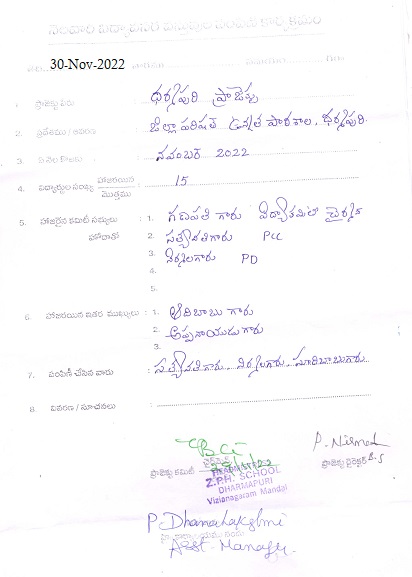 నెలవారి విద్యావసర వస్తువుల పంపిణీ కార్యక్రమం
30-Nov-2022
1. ప్రాజెక్టు పేరు : ధర్మపురి ప్రాజెక్టు
2. ప్రదేశము / ఆవరణ : జిల్లా పరిషత్ ఉన్నత పాఠశాల, ధర్మపురి.
3. ఏ నెల కొలకు : నవంబర్ 2022
4. విద్యార్థుల సంఖ్య హాజరయిన / మొత్తము : 15
5. హాజరైన కమిటీ సభ్యులు : 1. గణపతి గారు విద్యాకమిటీ చైర్మన్
హోదాతో 2. సత్యవతిగారు PCC
3. నిర్మలగారు PD
4.
5.
6. హాజరయిన ఇతర ముఖ్యులు : 1. ఆదిబాబు గారు
2. అప్పలనాయుడు గారు
7. పంపిణీ చేసిన వారు : సత్యవతిగారు, నిర్మలగారు, సూరిబాబుగారు.
8. వివరణ / సూచనలు :
ప్రాజెక్టు కమిటీ చైర్మన్
P. Nirmala
ప్రాజెక్టు డైరెక్టర్
HEADMASTER
Z.P.H. SCHOOL
DHARMAPURI
Vizianagaram Mandal
P. Dhanalakshmi
Asst. Manager.